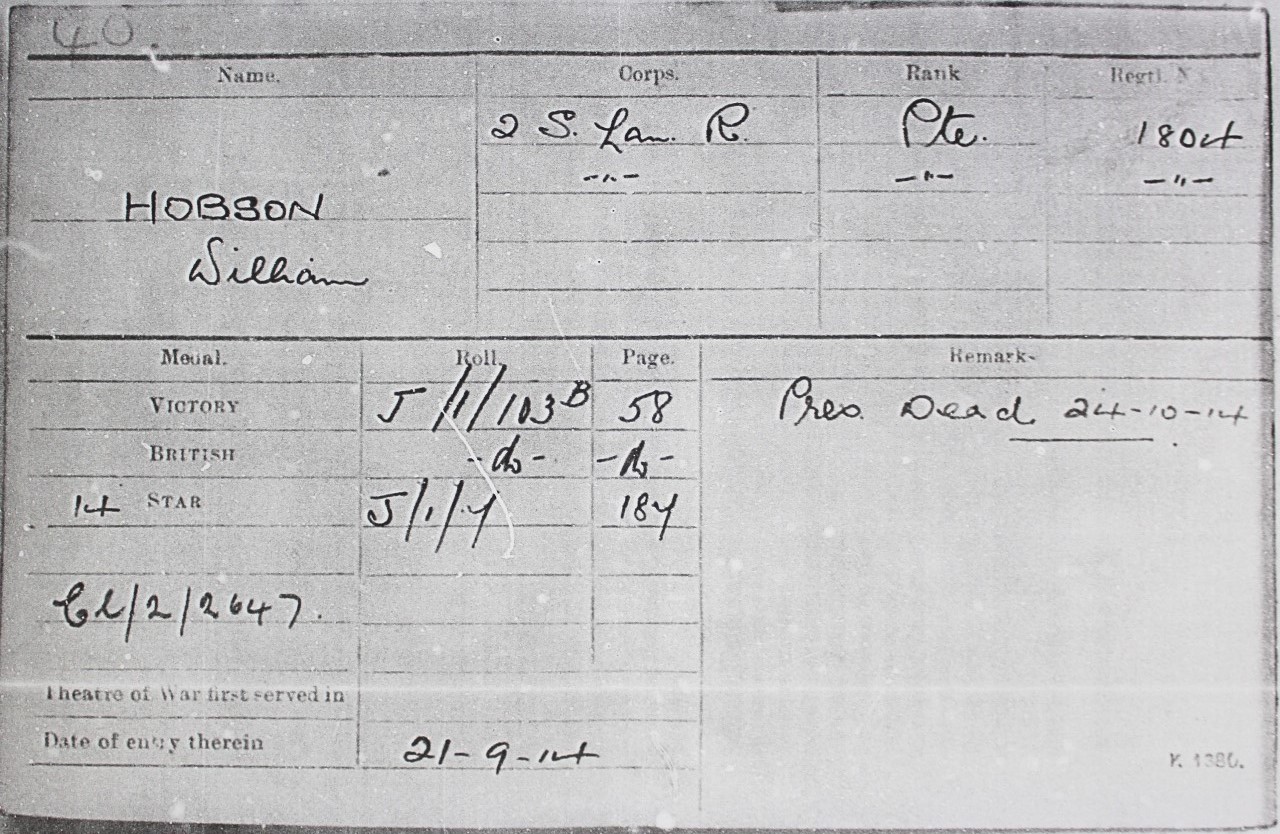 40.
Name. Corps. Rank Regtl. N
2 S. Lan. R. Pte. 1804
-"- -"- -"-
HOBSON
William
Medal. Roll. Page. Remark-
VICTORY J/1/103 B 58 Pres. Dead 24-10-14
BRITISH -do- -do-
14 STAR J/1/7 187
Cl/2/2647.
Theatre of War first served in
Date of entry therein 21-9-14
K. 1380.